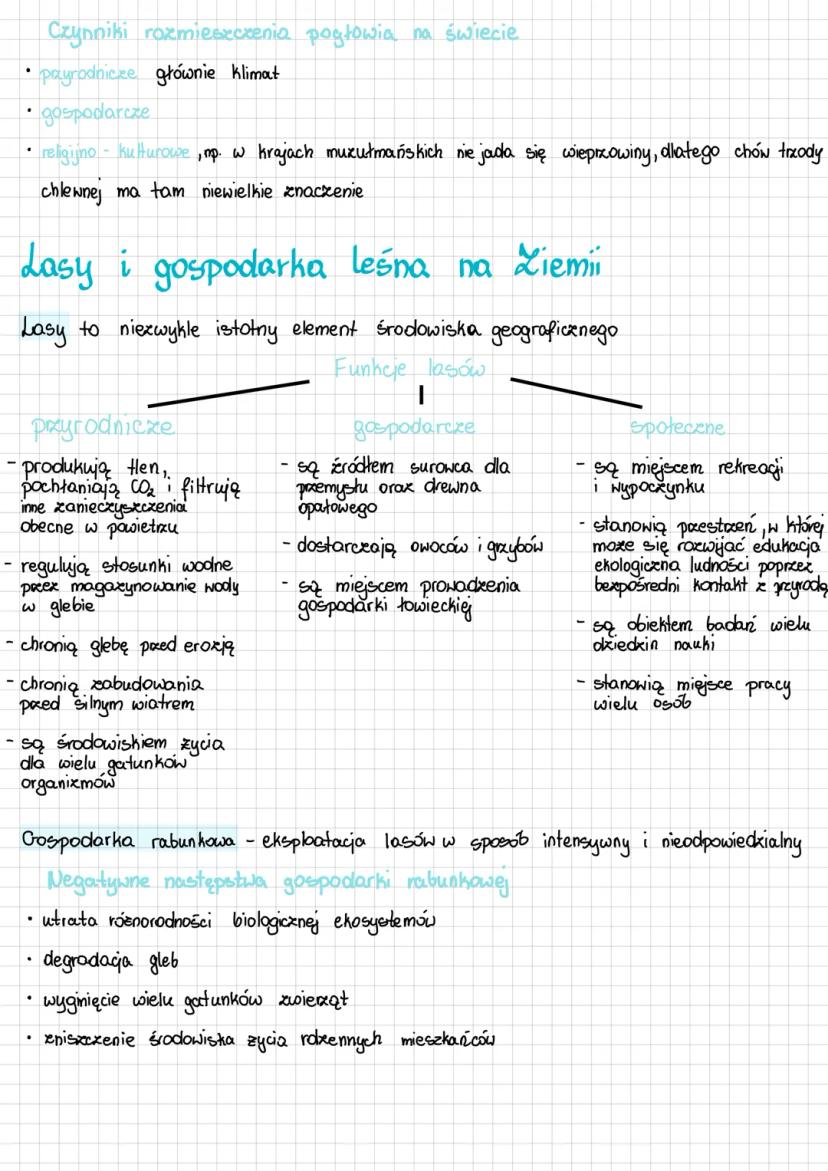 Czynniki rozmieszczenia pogłowia na świecie
• przyrodnicze głównie klimat
• gospodarcze
• religijno - kulturowe, np. w krajach muzułmańskich nie jada się wieprzowiny, dlatego chów trzody
chlewnej ma tam niewielkie znaczenie
Lasy i gospodarka leśna na Ziemii
Lasy to niezwykle istotny element środowiska geograficznego
Funkcje lasów
przyrodnicze
- produkują tlen,
pochłaniają CO₂ i filtrują
inne zanieczyszczenia
obecne w powietrzu
- regulują stosunki wodne
przez magazynowanie wody
w glebie
- chronią glebę przed erozją
- chronią zabudowania
przed silnym wiatrem
- są środowiskiem życia
dla wielu gatunków
organizmów
gospodarcze
- są źródłem surowca dla
przemysłu oraz drewna
opałowego
- dostarczają owoców i grzybów
- są miejscem prowadzenia
gospodarki łowieckiej
społeczne
- są miejscem rekreacji
i wypoczynku
- stanowią przestrzeń, w której
może się rozwijać edukacja
ekologiczna ludności poprzez
bezpośredni kontakt z przyrodą
- są obiektem badań wielu
dziedzin nauki
- stanowią miejsce pracy
wielu osób
Gospodarka rabunkowa - eksploatacja lasów w sposób intensywny i nieodpowiedzialny
Negatywne następstwa gospodarki rabunkowej
• utrata różnorodności biologicznej ekosystemów
• degradacja gleb
• wyginięcie wielu gatunków zwierząt
• zniszczenie środowiska życia rdzennych mieszkańców